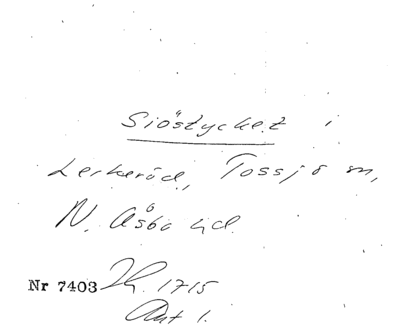 Siöstycket i
Lerkeröd, Tossjö sn,
N. Åsbo hd.
Nr 7403 Lh. 1715
Akt 1.